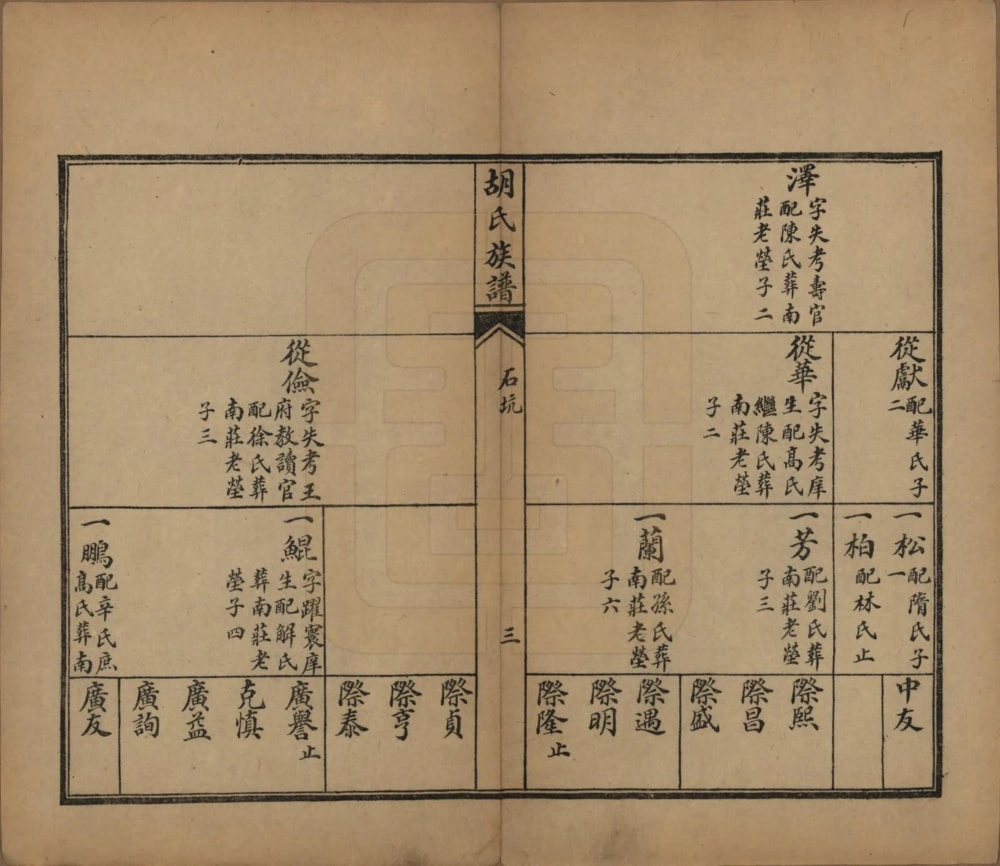 澤
字失考壽官
配陳氏葬南
莊老塋子二
從獻
配華氏子
二
從華
字失考庠
生配髙氏
繼陳氏葬
南莊老塋
子二
一松
配隋氏子
一
一柏
配林氏止
一芳
配劉氏葬
南莊老塋
子三
一蘭
配孫氏葬
南莊老塋
子六
中友
際熙
際昌
際盛
際遇
際明
際隆止
胡氏族譜
石坑
三
從儉
字失考王
府教讀官
配徐氏葬
南莊老塋
子三
一鯤
字躍寰庠
生配解氏
葬南莊老
塋子四
一鵬
配辛氏庶
髙氏葬南
際貞
際亨
際泰
廣譽止
克慎
廣益
廣詢
廣友